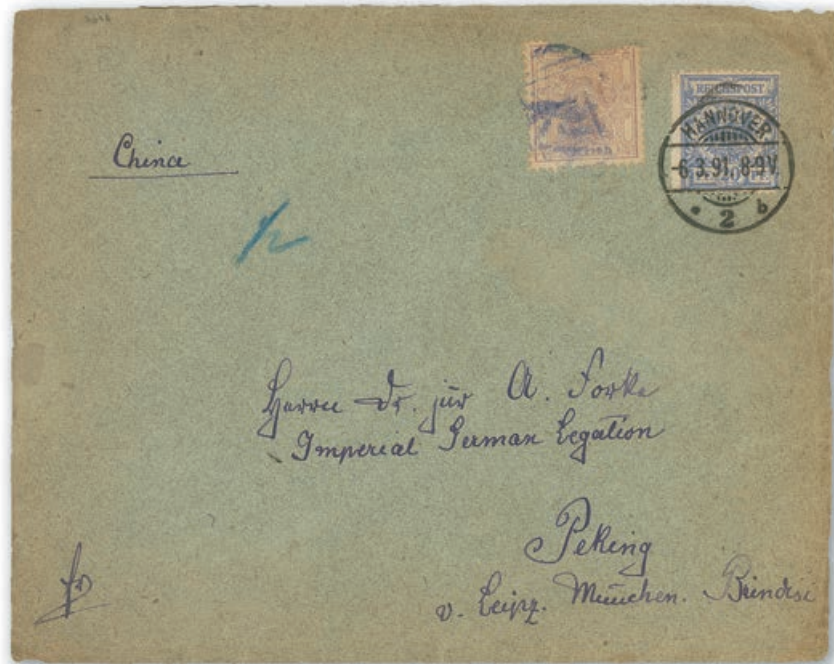 REICHSPOST
HANNOVER
-6.3.91. 8-9V.
* 2 b
China
Herrn Dr. jur A. Forke
Imperial German Legation
Peking
v. Leipz. München. Brindisi
fr